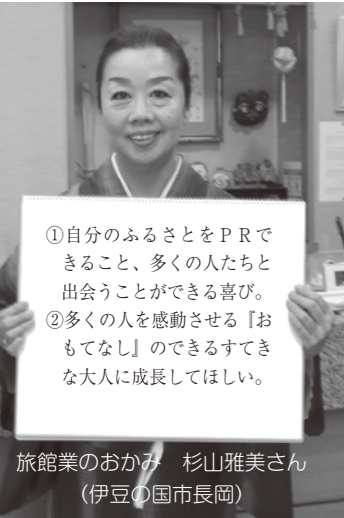 ①自分のふるさとをＰＲで
きること、多くの人たちと
出会うことができる喜び。
②多くの人を感動させる『お
もてなし』のできるすてき
な大人に成長してほしい。
旅館業のおかみ　杉山雅美さん
（伊豆の国市長岡）